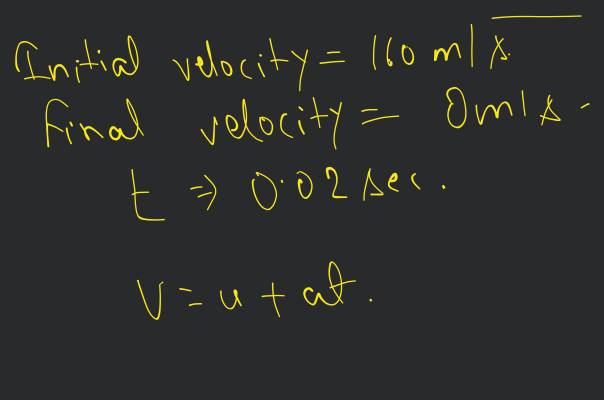 Initial velocity = 160 m/s.
final velocity = 0m/s.
t ⇒ 0.02 sec.
v = u + at.